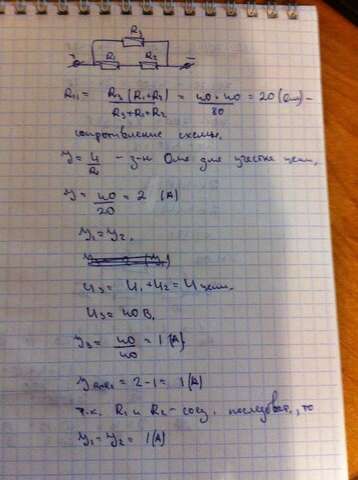 R₃
R₁ R₂
+ −
R₁₁ = R₃(R₁+R₂) / R₃+R₁+R₂ = 40·40 / 80 = 20 (Ом) –
сопротивление схемы.
У = U / R – з-н Ома для участка цепи,
У = 40 / 20 = 2 (А)
У₁ = У₂.
U₃ = U₁ + U₂ = U цепи.
U₃ = 40 В.
У₃ = 40 / 40 = 1 (А)
= 2-1 = 1 (А)
т.к. R₁ и R₂ – соед. последоват., то
У₁ = У₂ = 1 (А)